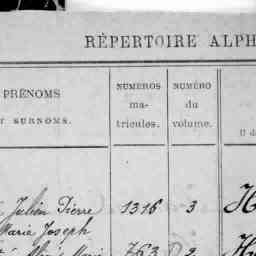 RÉPERTOIRE ALPH
PRÉNOMS
ET SURNOMS.
NUMÉROS
ma-
tricules.
NUMÉRO
du
volume.
Julien Pierre 1316 3 H
Marie Joseph
763 2